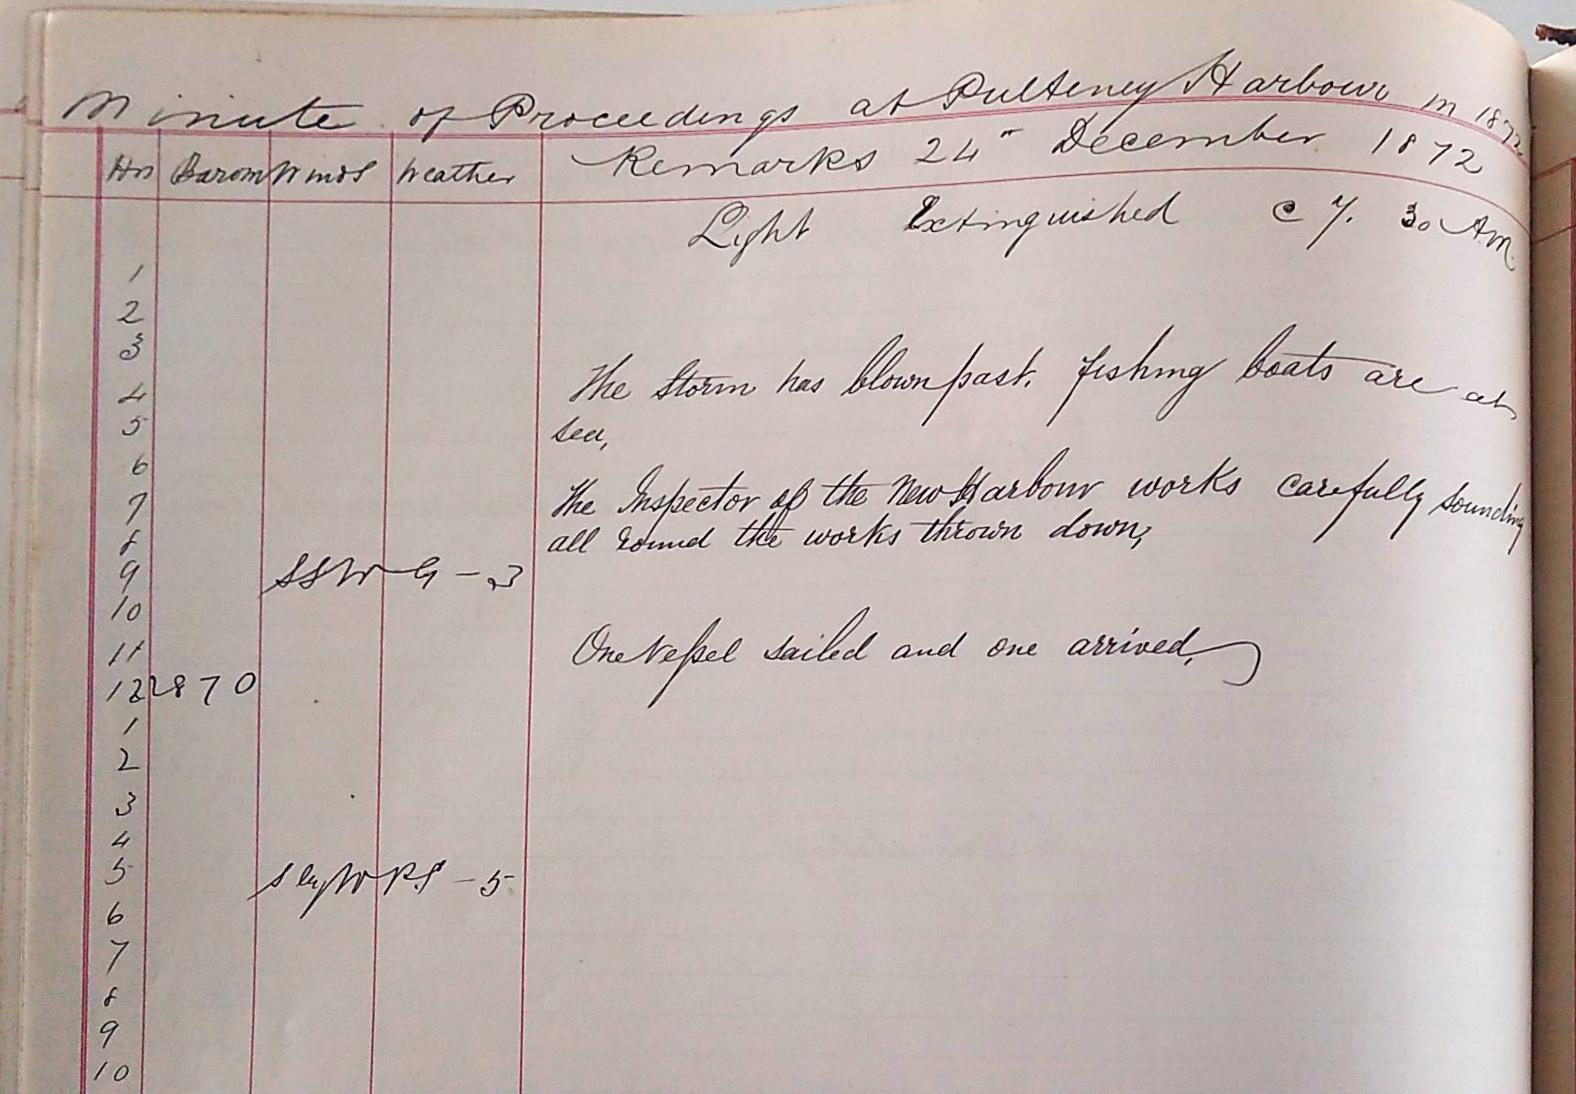 Minute of Proceedings at Pulteney Harbour in 1872
Hrs Barom Winds Weather Remarks 24" December 1872
Light Extinguished @ 7. 30 Am.
1
2
3
The Storm has blown past. fishing boats are at
4
sea,
5
6
The Inspector of the New Harbour works carefully sounding
7
all round the works thrown down,
8
9 SSW G - 3
10
11 One Vessel sailed and one arrived,
12 2870
1
2
3
4
5 S by W P.S - 5
6
7
8
9
10